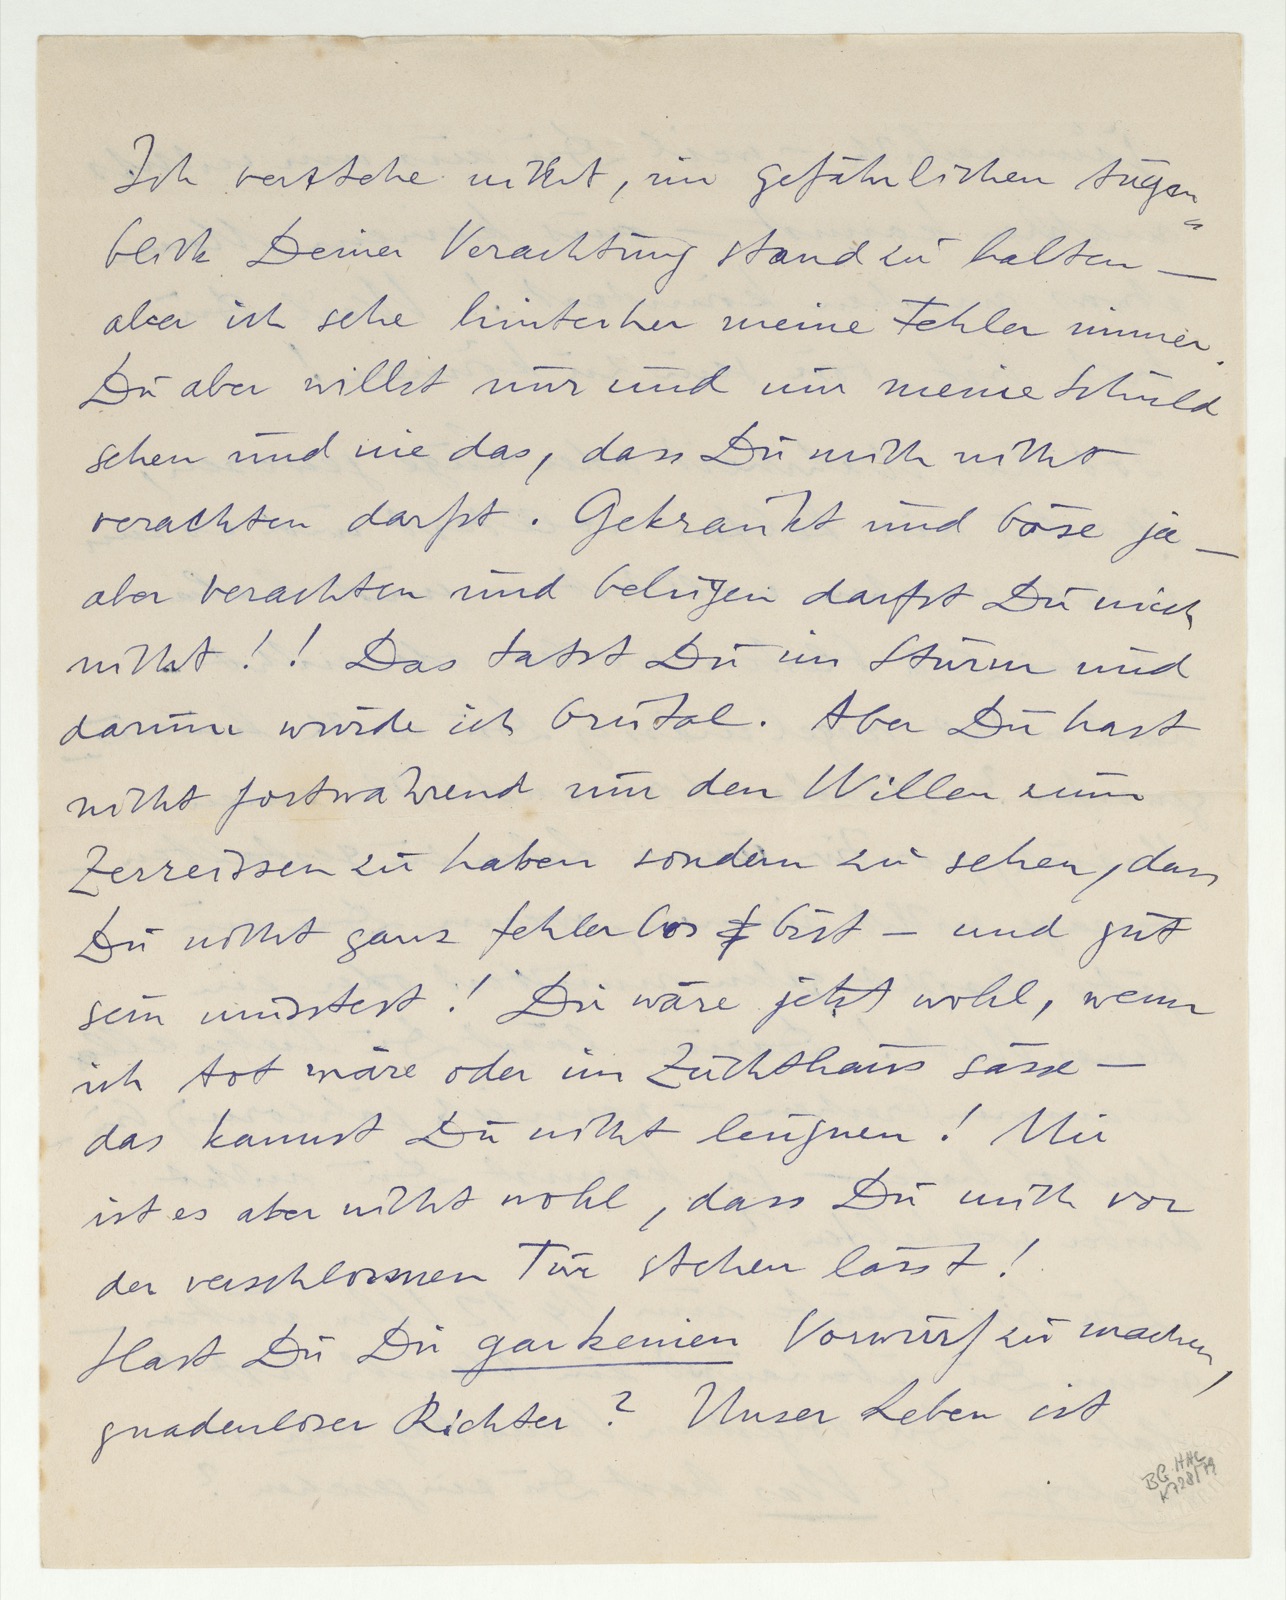 Ich verstehe nicht, im gefährlichen Augen=
blick Deiner Verachtung stand zu halten —
aber ich sehe hinterher meine Fehler immer.
Du aber willst nur und nur meine Schuld
sehen und nie das, dass Du mich nicht
verachten darfst. Gekränkt und böse ja —
aber verachten und belügen darfst Du mich
nicht!! Das tatst Du im Sturm und
darum wurde ich brutal. Aber Du hast
nicht fortwährend nur den Willen zum
Zerreissen zu haben sondern zu sehen, dass
Du nicht ganz fehlerlos bist – und gut
sein müsstest! Dir wäre jetzt wohl, wenn
ich tot wäre oder im Zuchthaus sässe –
das kannst Du nicht leugnen! Mir
ist es aber nicht wohl, dass Du mich vor
der verschlossenen Tür stehen lässt!
Hast Du Dir gar keinen Vorwurf zu machen,
gnadenloser Richter? Unser Leben ist
BG HHC
K728/79